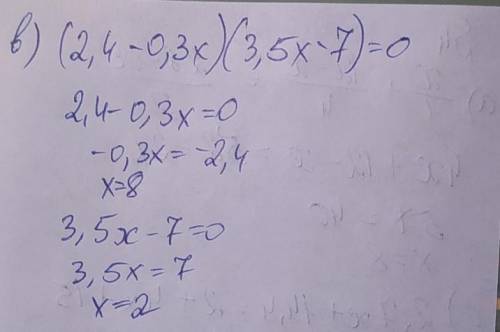 в) (2,4-0,3x)(3,5x-7)=0
2,4-0,3x=0
-0,3x=-2,4
x=8
3,5x-7=0
3,5x=7
x=2